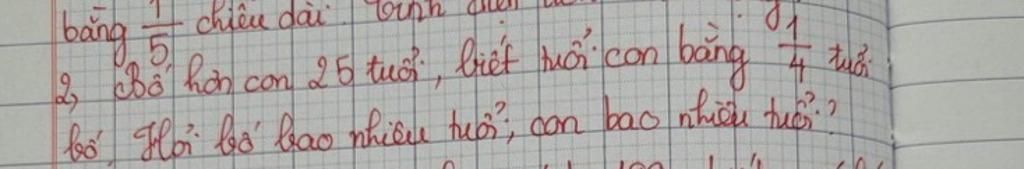 bằng 1/5 chiều dài. Tính
2, Bố hơn con 25 tuổi, biết tuổi con bằng 1/4 tuổi
bố. Hỏi bố bao nhiêu tuổi, con bao nhiêu tuổi?